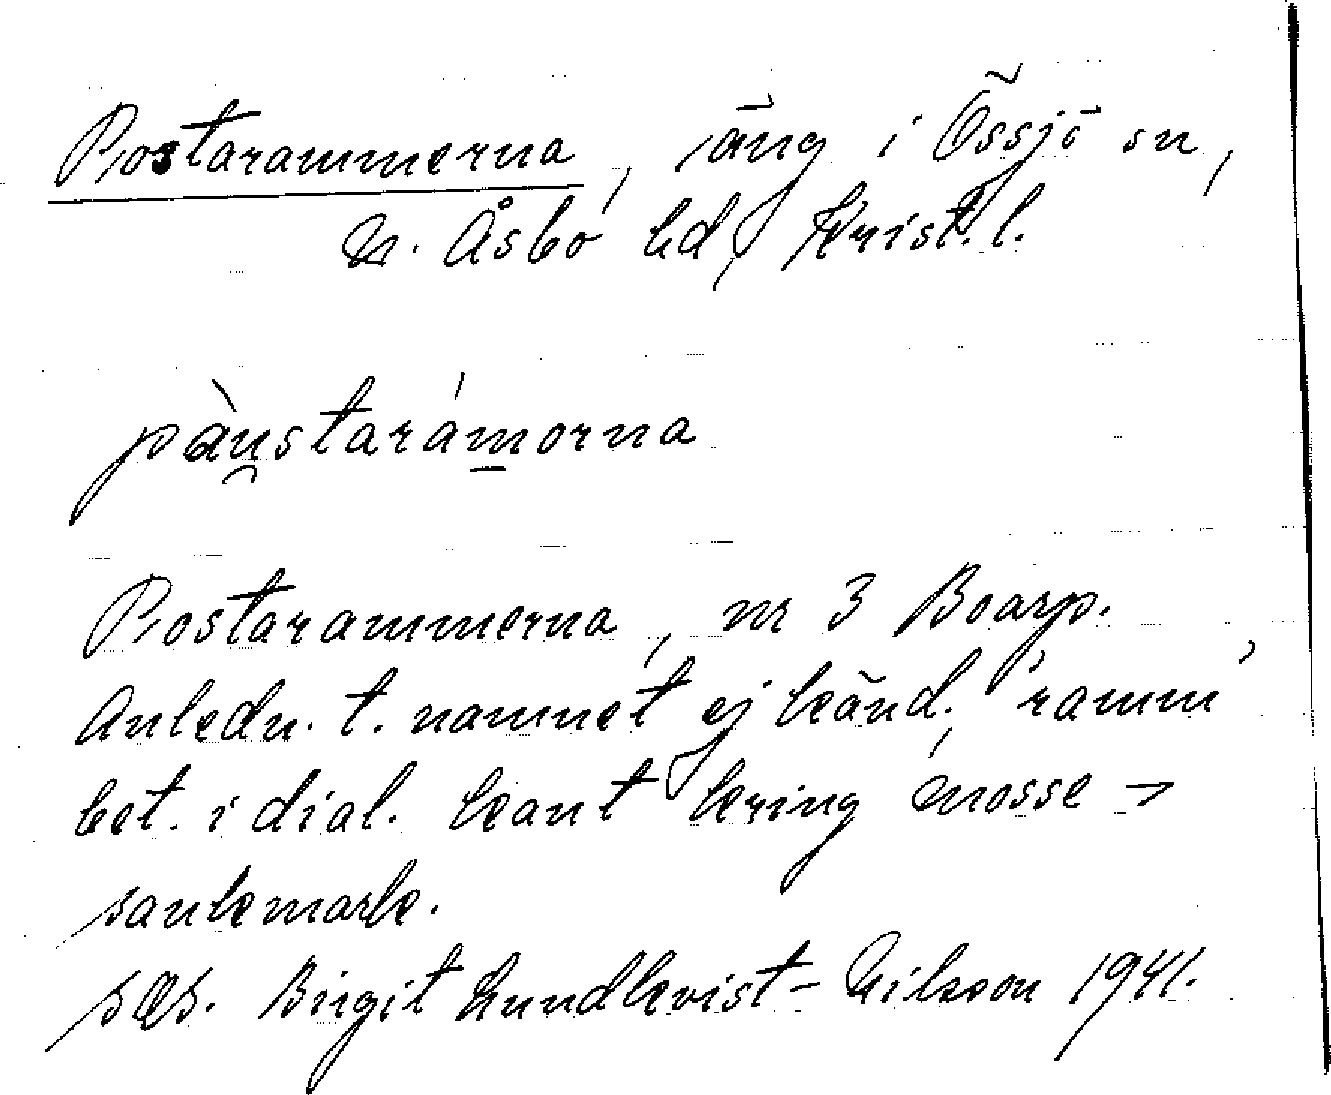 Postarammerna, äng i Össjö sn,
N. Åsbo hd, Krist. l.
pàu̯starám̲orna
Postarammerna, nr 3 Boarp.
Anledn. t. namnet ej känd. 'ramm'
bet. i dial. kant kring mosse →
sankmark.
Birgit Lundkvist-Nilsson 1941.